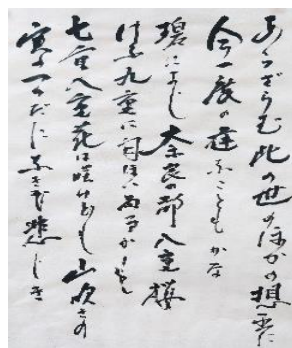 あらざらむ此の世のほかの想ひに
今一度の逢ふこともかな
碧によし奈良の都八重桜
けふ九重に
七重八重花は咲けども山吹の
実の一つだになきぞ悲しき